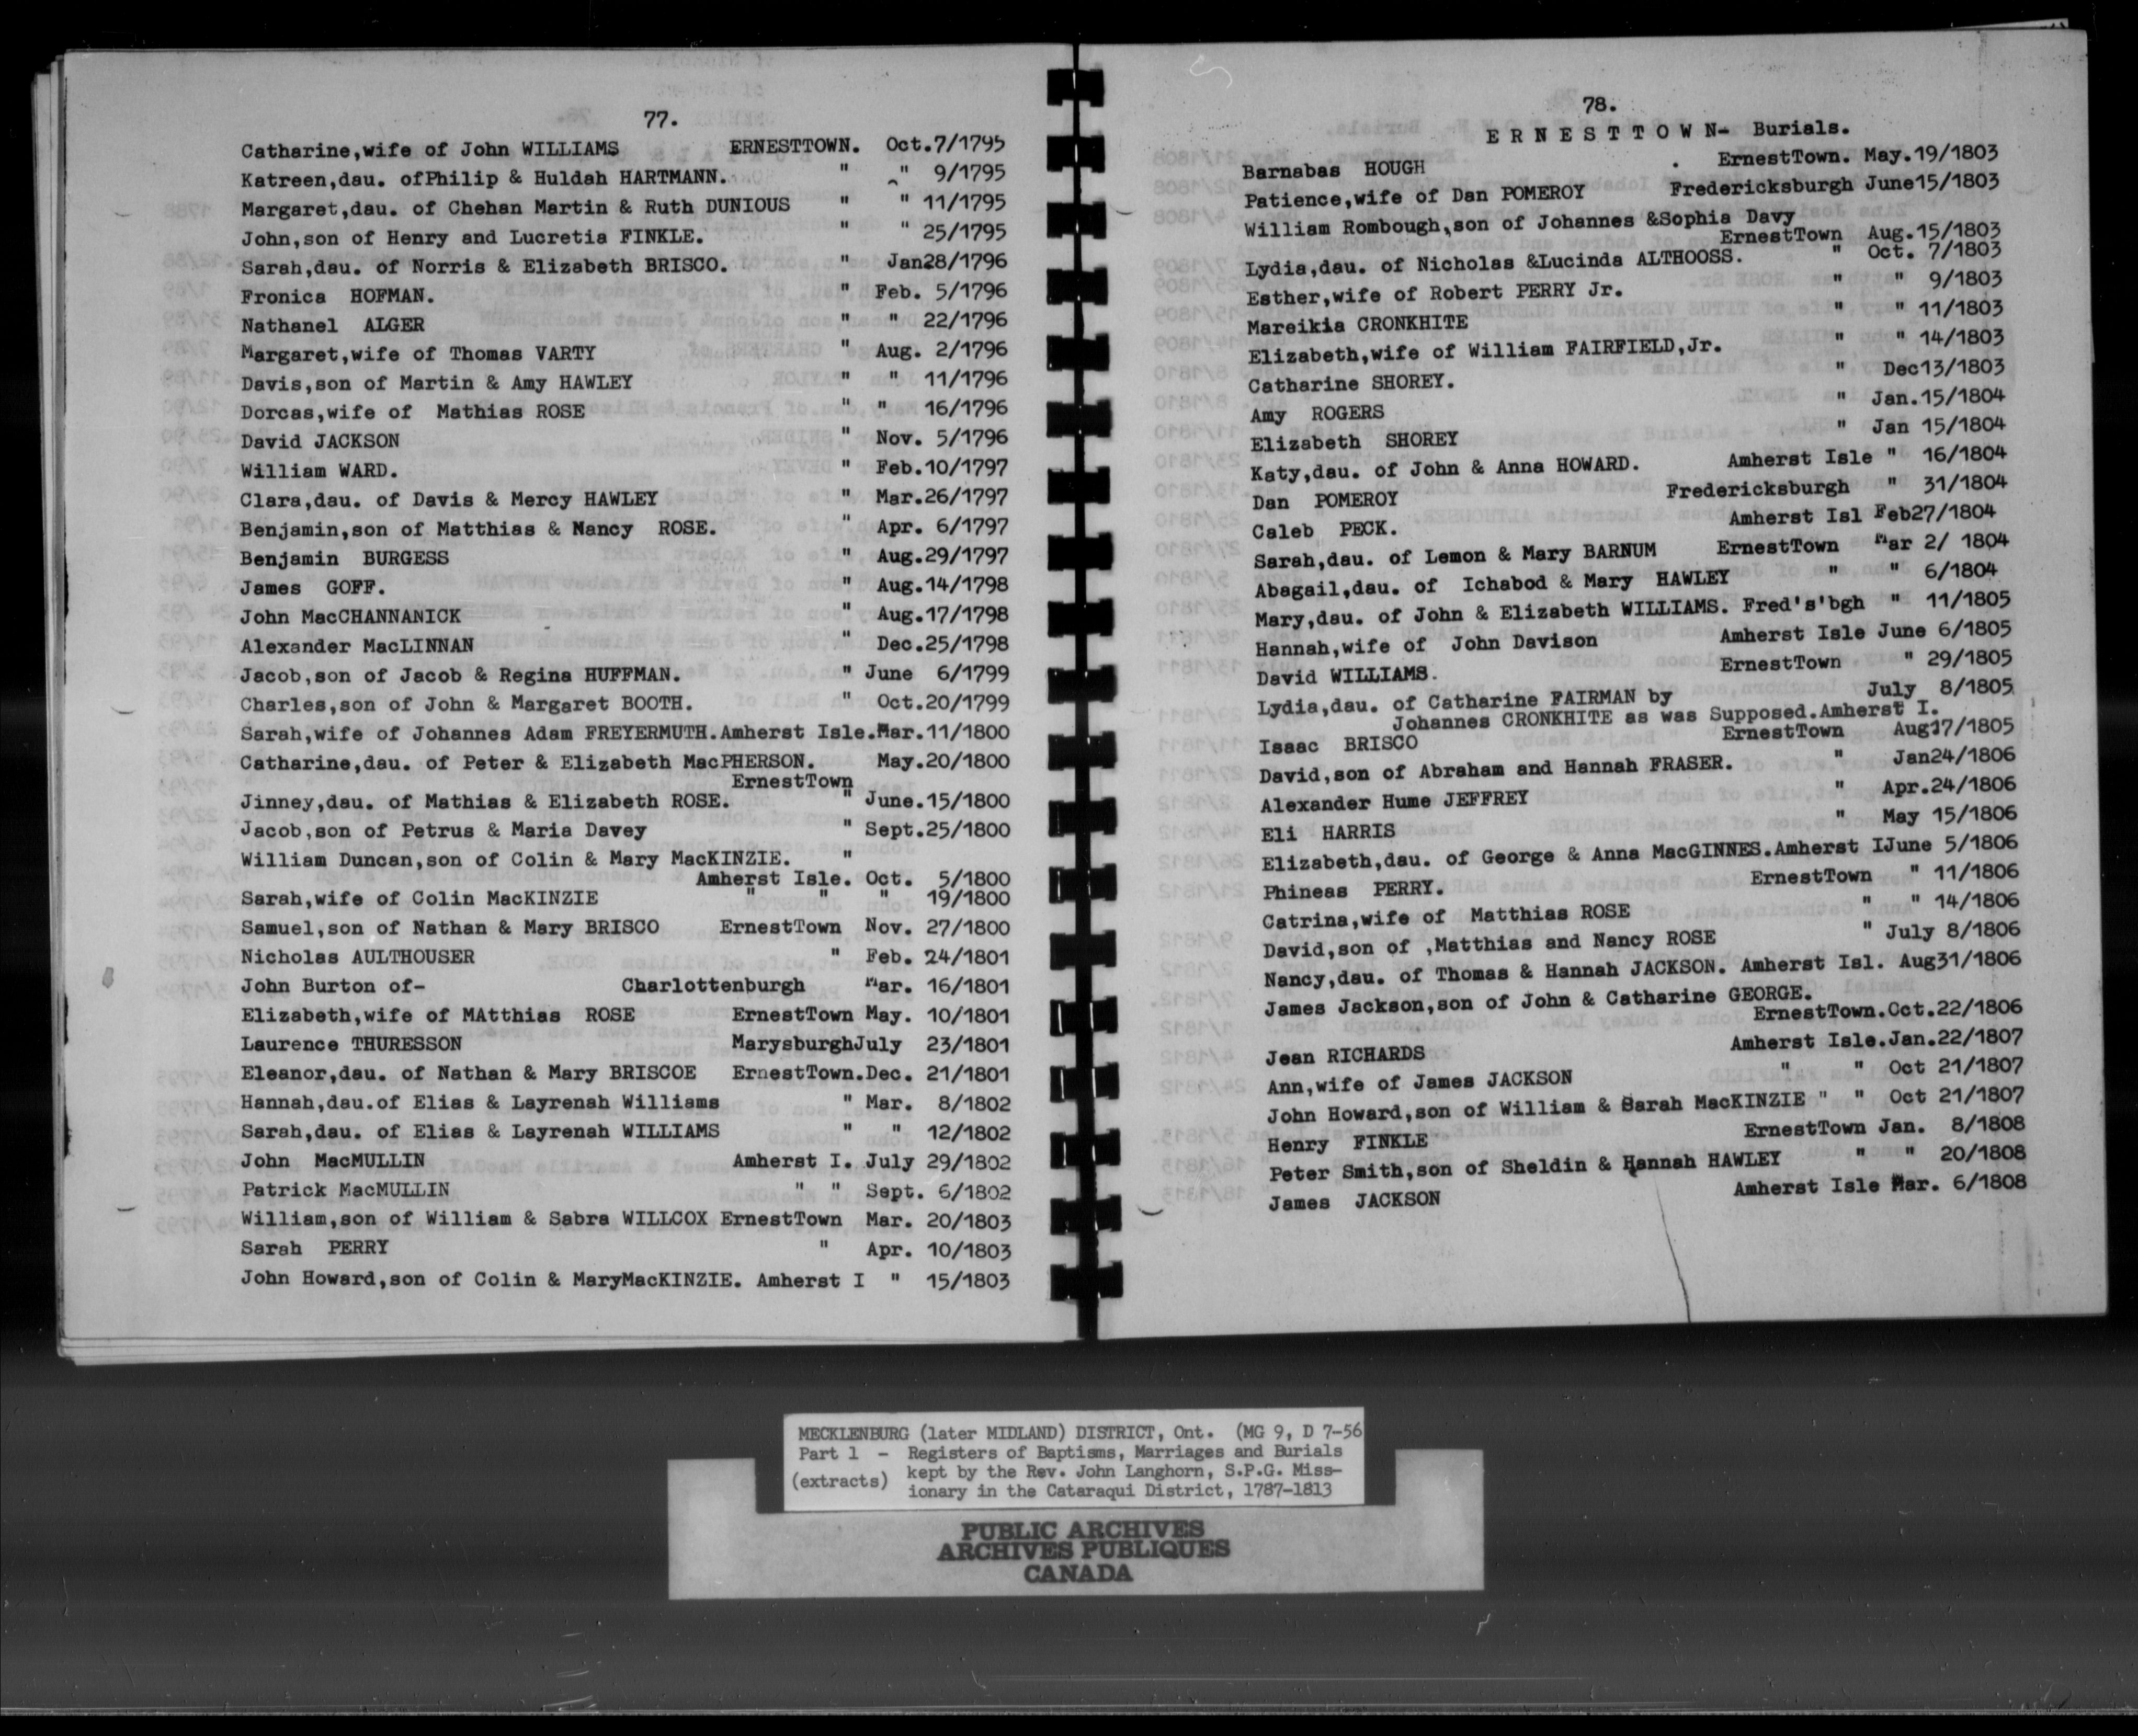 77.
Catharine,wife of John WILLIAMS ERNESTTOWN. Oct.7/1795
Katreen,dau. ofPhilip & Huldah HARTMANN. " " 9/1795
Margaret,dau. of Chehan Martin & Ruth DUNIOUS " " 11/1795
John,son of Henry and Lucretia FINKLE. " " 25/1795
Sarah,dau. of Norris & Elizabeth BRISCO. " Jan28/1796
Fronica HOFMAN. " Feb. 5/1796
Nathanel ALGER " " 22/1796
Margaret,wife of Thomas VARTY " Aug. 2/1796
Davis,son of Martin & Amy HAWLEY " " 11/1796
Dorcas,wife of Mathias ROSE " " 16/1796
David JACKSON " Nov. 5/1796
William WARD. " Feb.10/1797
Clara,dau. of Davis & Mercy HAWLEY " Mar.26/1797
Benjamin,son of Matthias & Nancy ROSE. " Apr. 6/1797
Benjamin BURGESS " Aug.29/1797
James GOFF. " Aug.14/1798
John MacCHANNANICK " Aug.17/1798
Alexander MacLINNAN " Dec.25/1798
Jacob,son of Jacob & Regina HUFFMAN. " June 6/1799
Charles,son of John & Margaret BOOTH. " Oct.20/1799
Sarah,wife of Johannes Adam FREYERMUTH.Amherst Isle.Mar.11/1800
Catharine,dau. of Peter & Elizabeth MacPHERSON. May.20/1800
ErnestTown
Jinney,dau. of Mathias & Elizabeth ROSE. " June.15/1800
Jacob,son of Petrus & Maria Davey " Sept.25/1800
William Duncan,son of Colin & Mary MacKINZIE. "
Amherst Isle. Oct. 5/1800
Sarah,wife of Colin MacKINZIE " " " 19/1800
Samuel,son of Nathan & Mary BRISCO ErnestTown Nov. 27/1800
Nicholas AULTHOUSER " Feb. 24/1801
John Burton of- Charlottenburgh Mar. 16/1801
Elizabeth,wife of MAtthias ROSE ErnestTown May. 10/1801
Laurence THURESSON MarysburghJuly 23/1801
Eleanor,dau. of Nathan & Mary BRISCOE ErnestTown.Dec. 21/1801
Hannah,dau.of Elias & Layrenah Williams " Mar. 8/1802
Sarah,dau. of Elias & Layrenah WILLIAMS " " 12/1802
John MacMULLIN Amherst I. July 29/1802
Patrick MacMULLIN " " Sept. 6/1802
William,son of William & Sabra WILLCOX ErnestTown Mar. 20/1803
Sarah PERRY " Apr. 10/1803
John Howard,son of Colin & MaryMacKINZIE. Amherst I " 15/1803
78.
E R N E S T T O W N- Burials.
Barnabas HOUGH . ErnestTown. May.19/1803
Patience,wife of Dan POMEROY Fredericksburgh June15/1803
William Rombough,son of Johannes &Sophia Davy
ErnestTown Aug.15/1803
Lydia,dau. of Nicholas &Lucinda ALTHOOSS. " Oct. 7/1803
Esther,wife of Robert PERRY Jr. " " 9/1803
Mareikia CRONKHITE " " 11/1803
Elizabeth,wife of William FAIRFIELD,Jr. " " 14/1803
Catharine SHOREY. " Dec13/1803
Amy ROGERS " Jan.15/1804
Elizabeth SHOREY " Jan 15/1804
Katy,dau. of John & Anna HOWARD. Amherst Isle " 16/1804
Dan POMEROY Fredericksburgh " 31/1804
Caleb PECK. Amherst Isl Feb27/1804
Sarah,dau. of Lemon & Mary BARNUM ErnestTown Mar 2/ 1804
Abagail,dau. of Ichabod & Mary HAWLEY " " 6/1804
Mary,dau. of John & Elizabeth WILLIAMS. Fred's'bgh " 11/1805
Hannah,wife of John Davison Amherst Isle June 6/1805
David WILLIAMS. ErnestTown " 29/1805
Lydia,dau. of Catharine FAIRMAN by July 8/1805
Johannes CRONKHITE as was Supposed.Amherst I.
Isaac BRISCO ErnestTown Aug17/1805
David,son of Abraham and Hannah FRASER. " Jan24/1806
Alexander Hume JEFFREY " Apr.24/1806
Eli HARRIS " May 15/1806
Elizabeth,dau. of George & Anna MacGINNES.Amherst IJune 5/1806
Phineas PERRY. ErnestTown " 11/1806
Catrina,wife of Matthias ROSE " " 14/1806
David,son of ,Matthias and Nancy ROSE " July 8/1806
Nancy,dau. of Thomas & Hannah JACKSON. Amherst Isl. Aug31/1806
James Jackson,son of John & Catharine GEORGE.
ErnestTown.Oct.22/1806
Jean RICHARDS Amherst Isle.Jan.22/1807
Ann,wife of James JACKSON " " Oct 21/1807
John Howard,son of William & Sarah MacKINZIE " " Oct 21/1807
Henry FINKLE ErnestTown Jan. 8/1808
Peter Smith,son of Sheldin & Hannah HAWLEY " " 20/1808
James JACKSON Amherst Isle Mar. 6/1808
MECKLENBURG (later MIDLAND) DISTRICT, Ont. (MG 9, D 7-56
Part 1 - Registers of Baptisms, Marriages and Burials
(extracts) kept by the Rev. John Langhorn, S.P.G. Miss-
ionary in the Cataraqui District, 1787-1813
PUBLIC ARCHIVES
ARCHIVES PUBLIQUES
CANADA